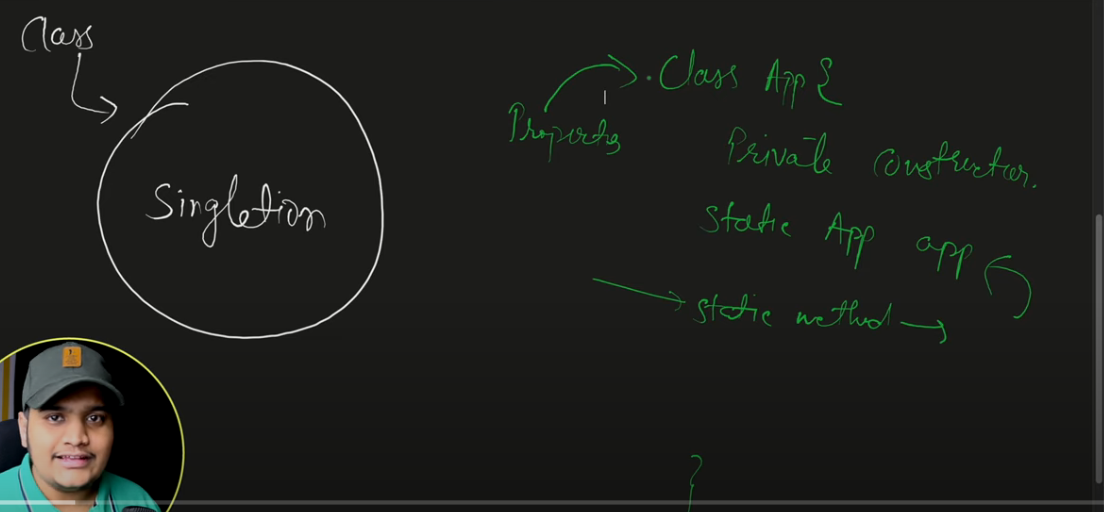 Class
Singletion
Properties
Class App {
Private constructor.
Static App app
static method
}